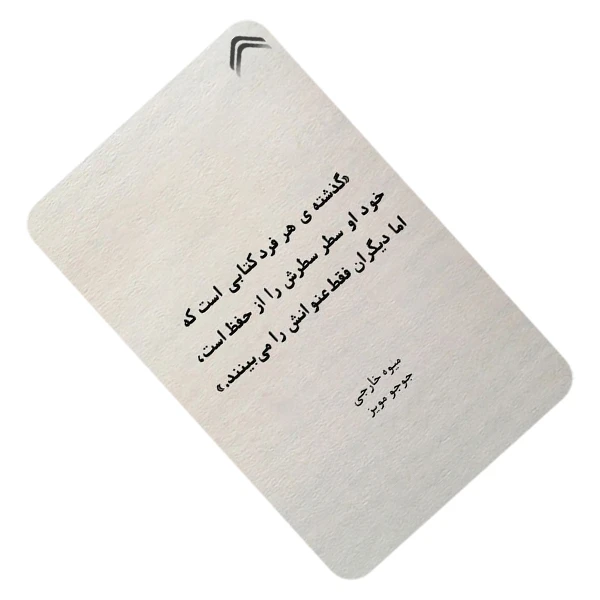 «گذشته ی هر فرد کتابی است که
خود او سطر سطرش را از حفظ است،
اما دیگران فقط عنوانش را می‌بینند.»
میوه خارجی
جوجو مویز